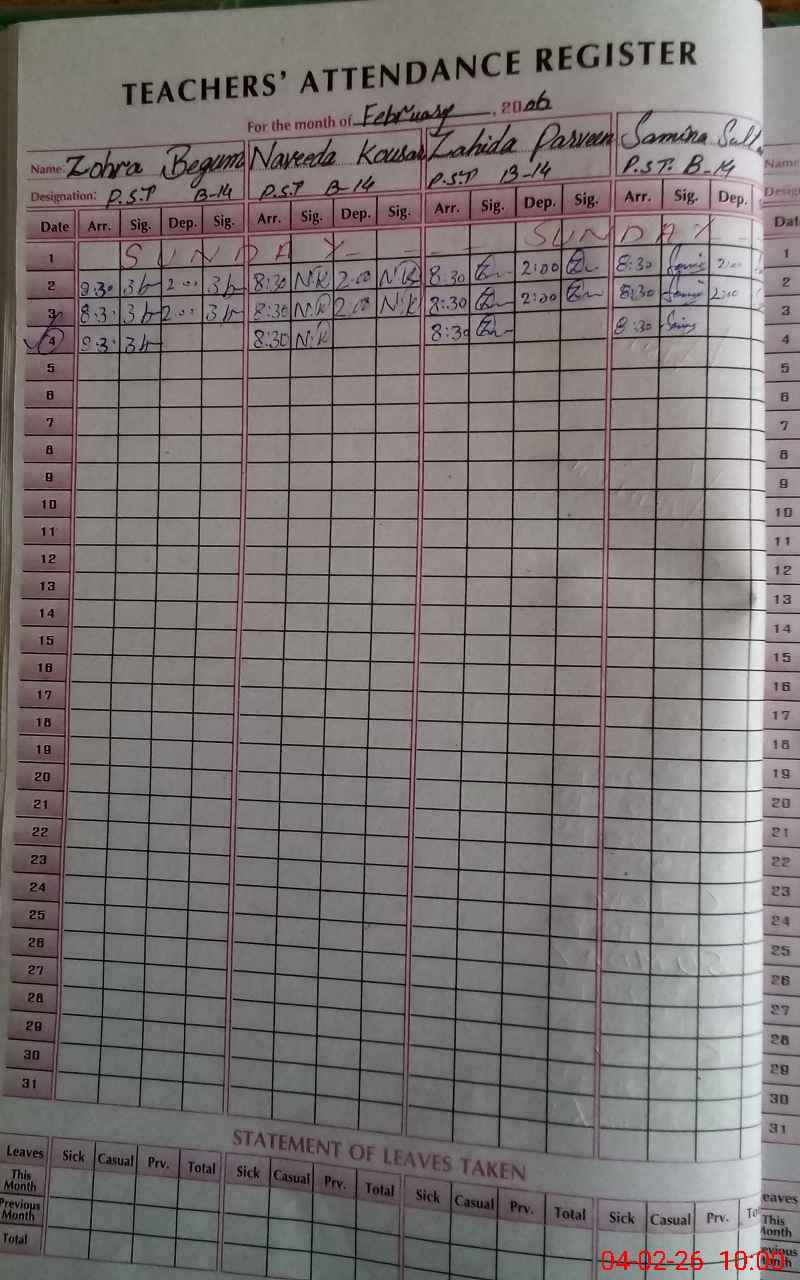 TEACHERS' ATTENDANCE REGISTER
For the month of February, 2006
Name: Zohra Begum Naveeda Kousar Zahida Parveen Samina Name
Designation: P.S.T B-14 P.S.T B-14 P.S.T B-14 P.S.T. B-14 Desig
Date Arr. Sig. Dep. Sig. Arr. Sig. Dep. Sig. Arr. Sig. Dep. Sig. Arr. Sig. Dep. Dat
1 SUNDAY SUNDAY 1
2 8:30 2:00 8:30 N.K 2:00 N.K 8:30 2:00 8:30 2:00 2
3 8:30 2:00 8:30 N.K 2:00 N.K 8:30 2:00 8:30 2:00 3
4 8:30 8:30 N.K 8:30 8:30 4
5 5
6 6
7 7
8 8
9 9
10 10
11 11
12 12
13 13
14 14
15 15
16 16
17 17
18 18
19 19
20 20
21 21
22 22
23 23
24 24
25 25
26 26
27 27
28 28
29 29
30 30
31 31
STATEMENT OF LEAVES TAKEN
Leaves Sick Casual Prv. Total Sick Casual Prv. Total Sick Casual Prv. Total Sick Casual Prv. To eaves
This Month This Month
Previous Month
Total
04-02-26 10:00